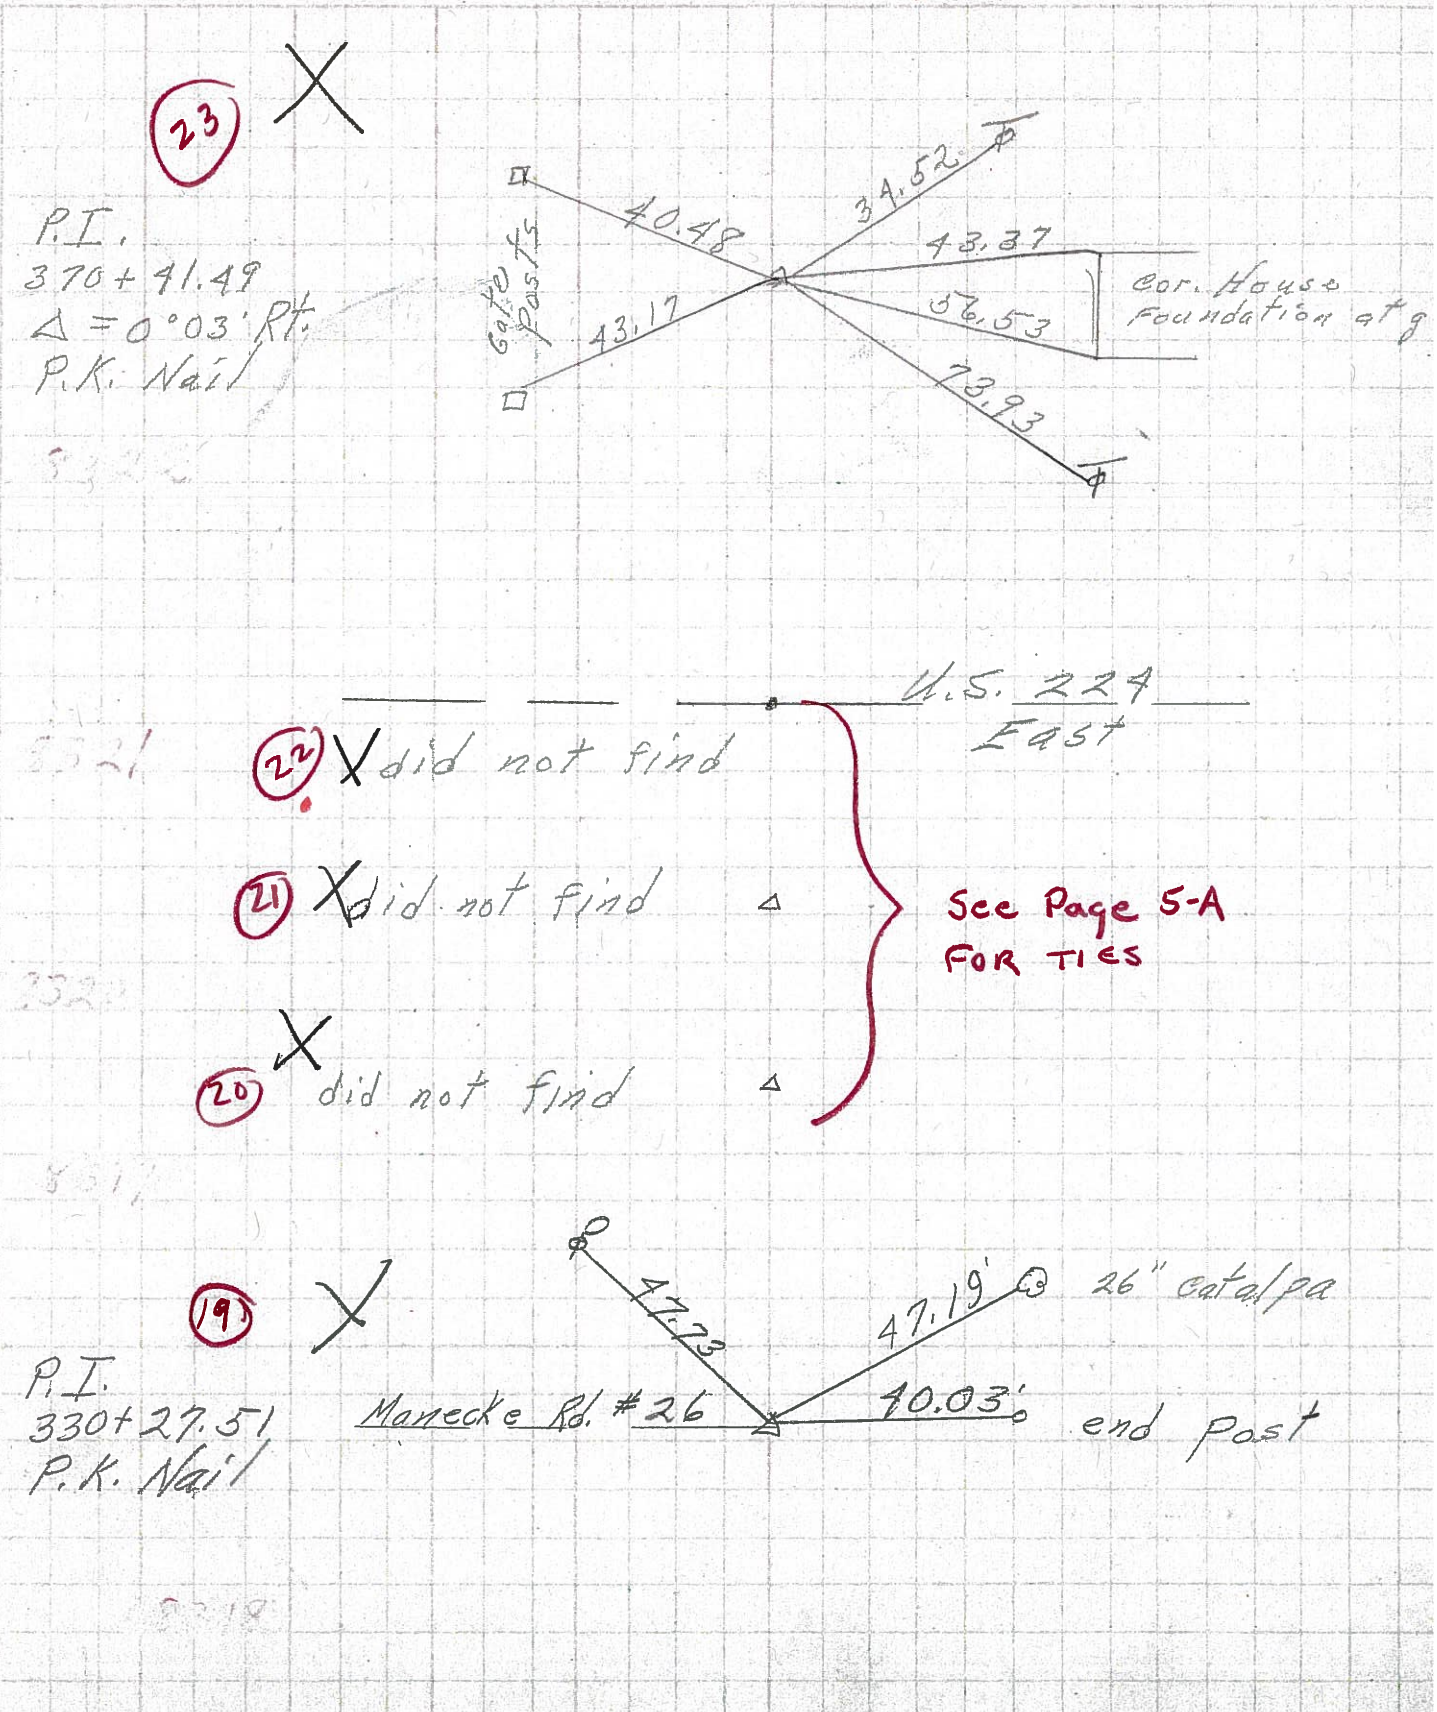 23 X
P.I.
370+41.49
Δ = 0°03' Rt.
P.K. Nail
Gate
Posts
40.48
43.17
34.52
43.37
56.53
73.93
Cor. House
Foundation at g
U.S. 224
East
22 X did not find
21 X did not find
20 X did not find
See Page 5-A
FOR TIES
19 X
P.I.
330+27.51
P.K. Nail
Manecke Rd. #26
47.73
47.19'
26" Catalpa
40.03'
end Post